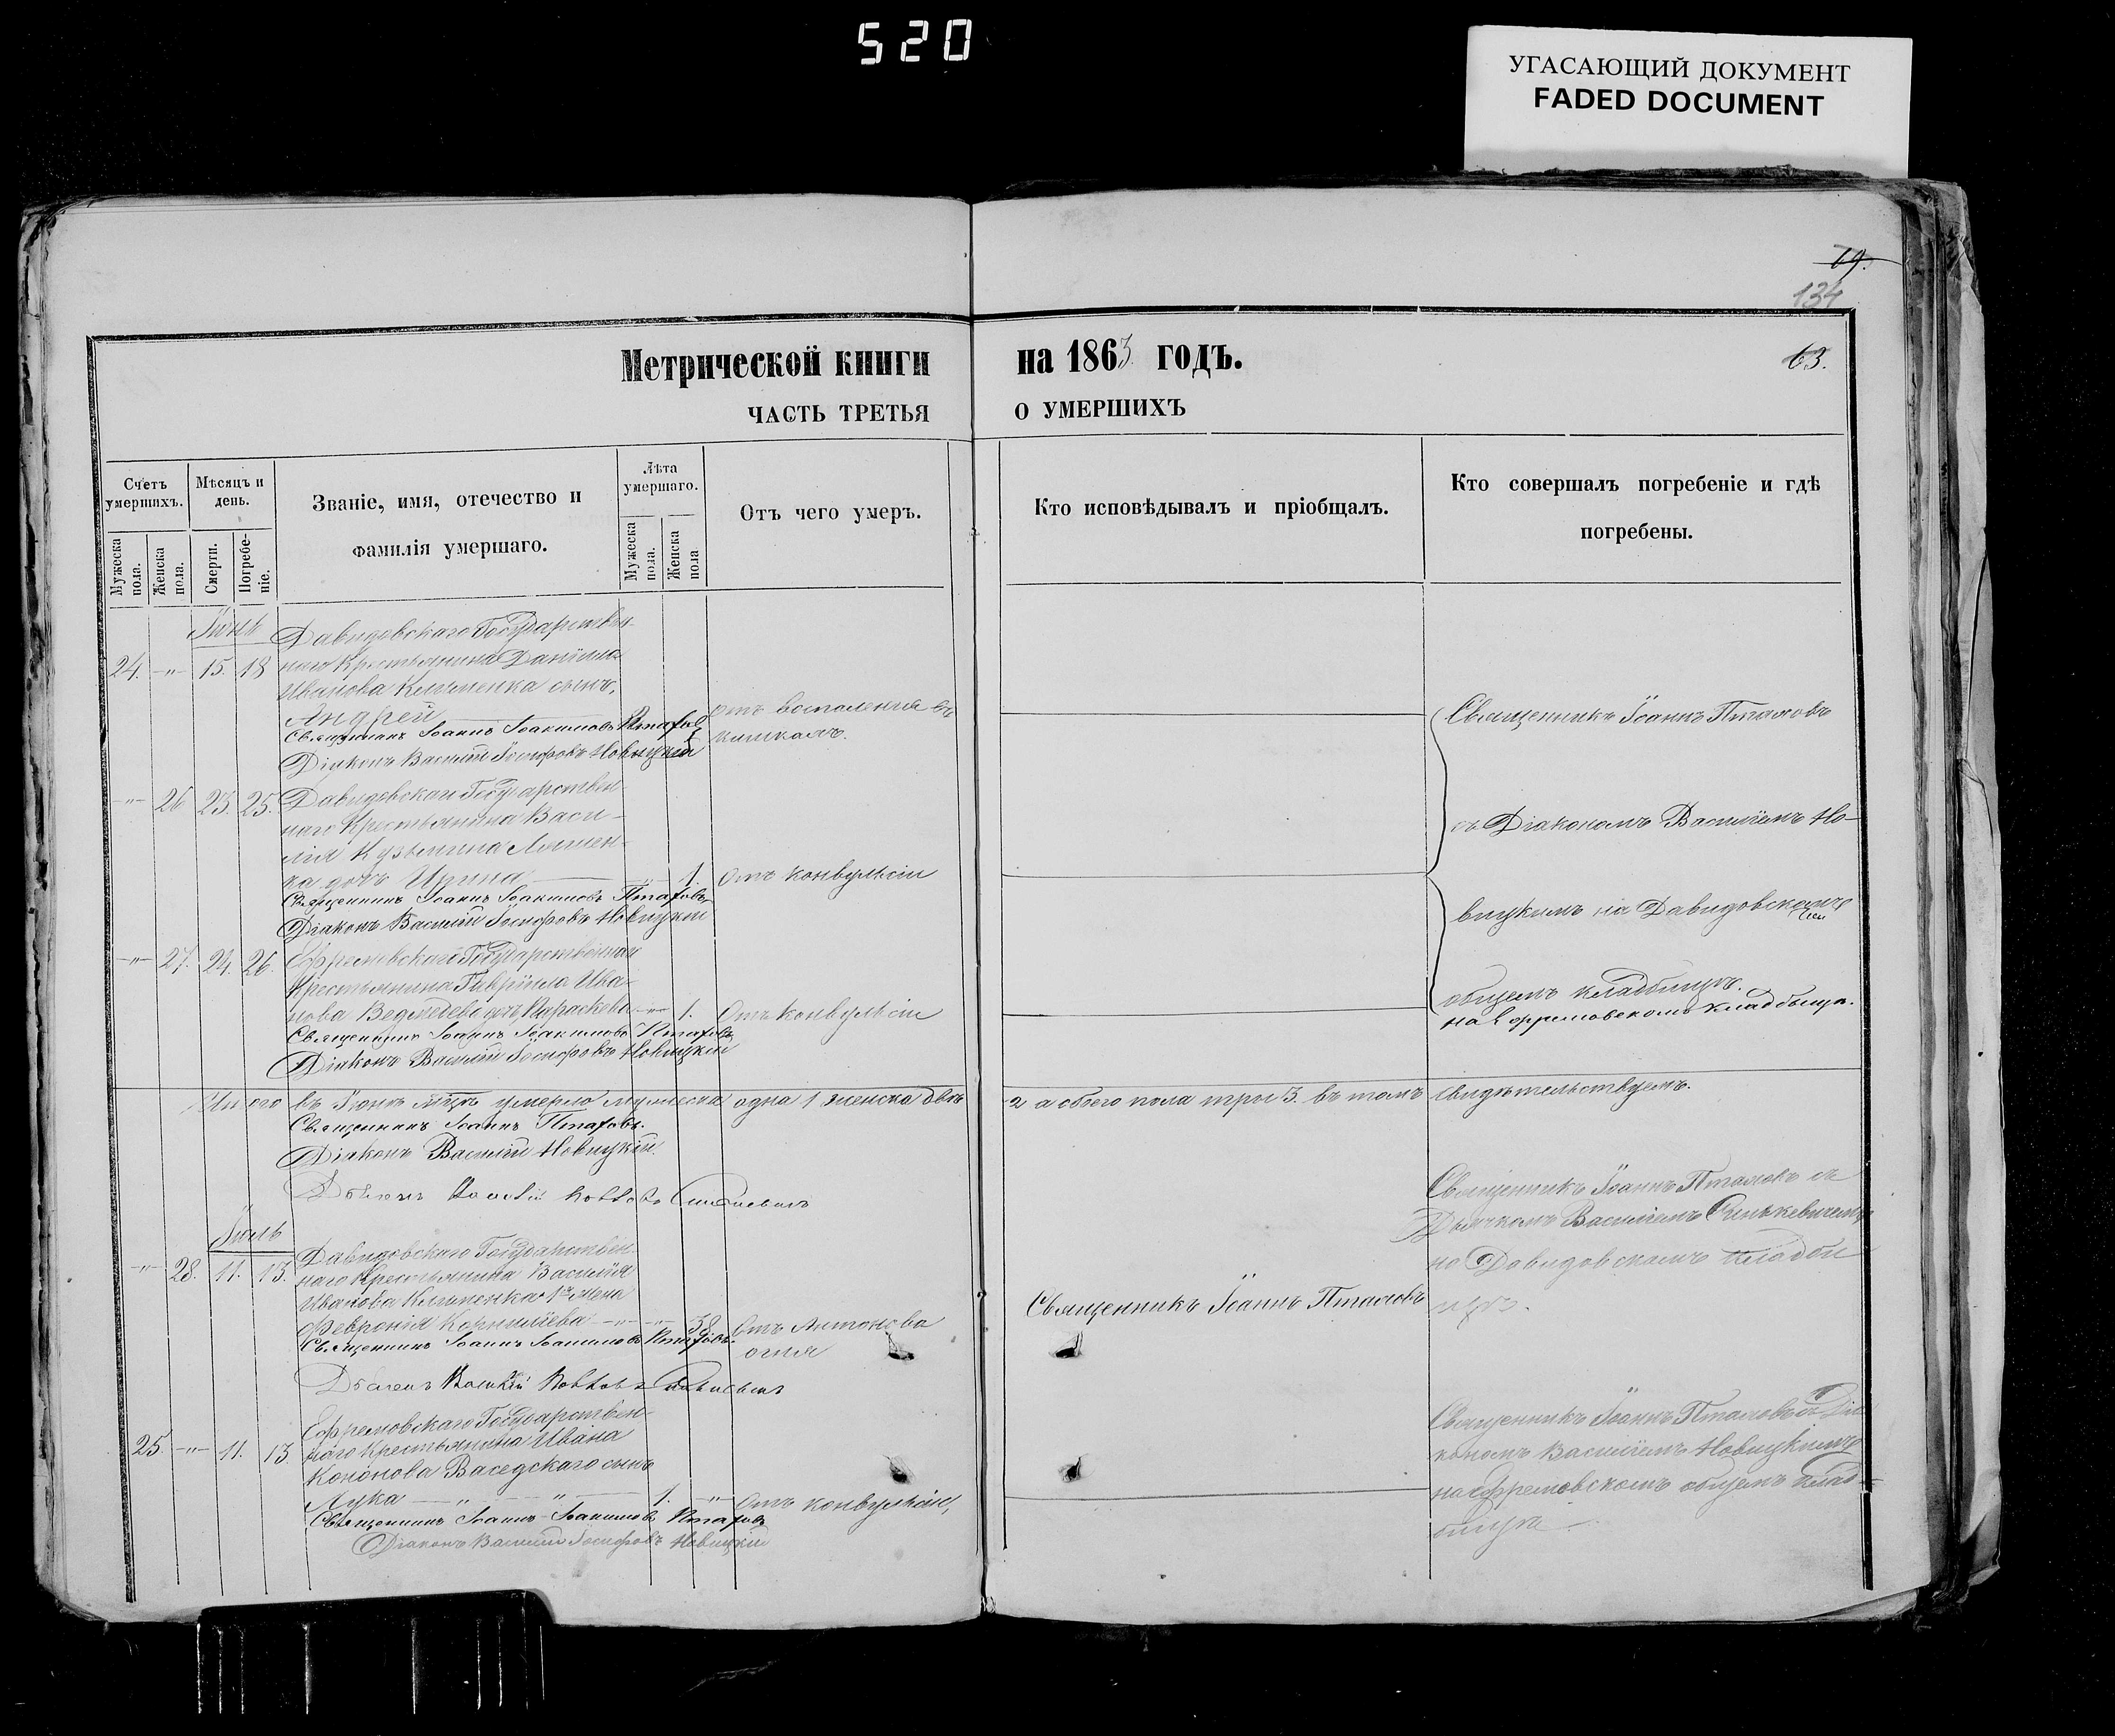 520
УГАСАЮЩИЙ ДОКУМЕНТ
FADED DOCUMENT
79.
134
63.
Метрической книги на 1863 годъ.
ЧАСТЬ ТРЕТЬЯ О УМЕРШИХЪ
Счетъ умершихъ.
Мужеска пола.
Женска пола.
Мѣсяцъ и день.
Смерти.
Погребеніе.
Званіе, имя, отечество и
фамилія умершаго.
Лѣта умершаго.
Мужеска пола.
Женска пола
Отъ чего умеръ.
Кто исповѣдывалъ и пріобщалъ.
Кто совершалъ погребеніе и гдѣ
погребены.
Іюнь
Давидовскаго Государствен-
24. -"- 15. 18 наго Крестьянина Даніила
Иванова Клименка сынъ,
Андрей отъ воспаленія въ
Священникъ Іоаннъ Іоакимовъ Птахов кишкахъ.
Діаконъ Василій Іосифовъ Новицкій
Священникъ Іоаннъ Птаховъ
-"- 26 23. 25. Давидовскаго Государствен
наго Крестьянина Васи-
лія Кузьмина Ляшен-
ка дочь Ирина 1. Отъ конвульсіи
Священникъ Іоаннъ Іоакимовъ Птаховъ
Діаконъ Василій Іосифовъ Новицкій
съ Діакономъ Василіемъ Но-
вицкимъ на Давидовскомъ
-"- 27. 24. 26. Ефремовскаго Государственнаго
Крестьянина Гавріила Ива-
нова Ведмедева дочь Параскева -"- 1. Отъ конвульсіи
Священникъ Іоаннъ Іоакимовъ Птаховъ
Діаконъ Василій Іосифовъ Новицкій
общемъ кладбищѣ.
на Ефремовскомъ кладбищѣ.
Итого въ Іюнѣ мцѣ умерло мужеска одна 1 женска двѣ 2 а обоего пола три 3. въ томъ свидѣтельствуемъ.
Священникъ Іоаннъ Птаховъ.
Діаконъ Василій Новицкій.
Іюль
-"- 28. 11. 13. Давидовскаго Государствен-
наго Крестьянина Василія
Иванова Клименка жена
Февронія Корниліева -"- -"- 38. Отъ Антонова
огня
Священникъ Іоаннъ Іоакимовъ Птаховъ.
Священникъ Іоаннъ Птаховъ
Священникъ Іоаннъ Птаховъ съ
Дьячкомъ Василіемъ Синькевичемъ
на Давидовскомъ кладби
щѣ.
Ефремовскаго Государствен-
25 -"- 11. 13 наго Крестьянина Ивана
Кононова Васедскаго сынъ
Лука -"- -"- 1. -"- Отъ конвульсіи,
Священникъ Іоаннъ Іоакимовъ Птаховъ
Діаконъ Василій Іосифовъ Новицкій
Священникъ Іоаннъ Птаховъ съ Діа
кономъ Василіемъ Новицкимъ
на Ефремовскомъ общемъ клад-
бищѣ.